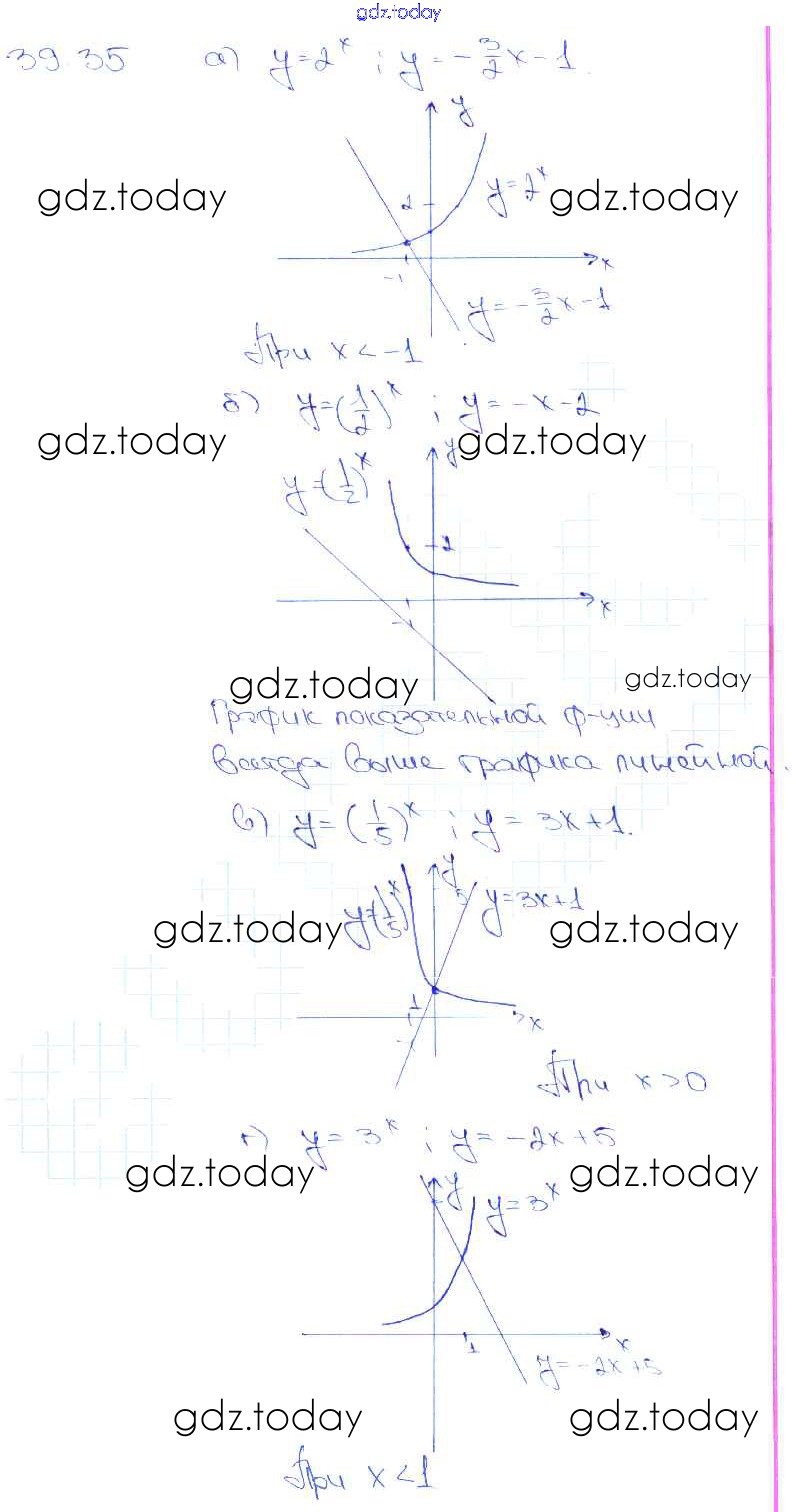 gdz.today
39.35 а) y=2^x ; y=-3/2x-1.
y
gdz.today 2 y=2^x gdz.today
-1 x
y=-3/2x-1
При x<-1
б) y=(1/2)^x ; y=-x-2
gdz.today y gdz.today
y=(1/2)^x
2
-1 x
gdz.today gdz.today
График показательной ф-ции
всегда выше графика линейной.
в) y=(1/5)^x ; y=3x+1.
y
5
gdz.today y=(1/5)^x y=3x+1 gdz.today
1
-1 x
При x>0
г) y=3^x ; y=-2x+5
gdz.today gdz.today
y y=3^x
1 x
y=-2x+5
gdz.today gdz.today
При x<1